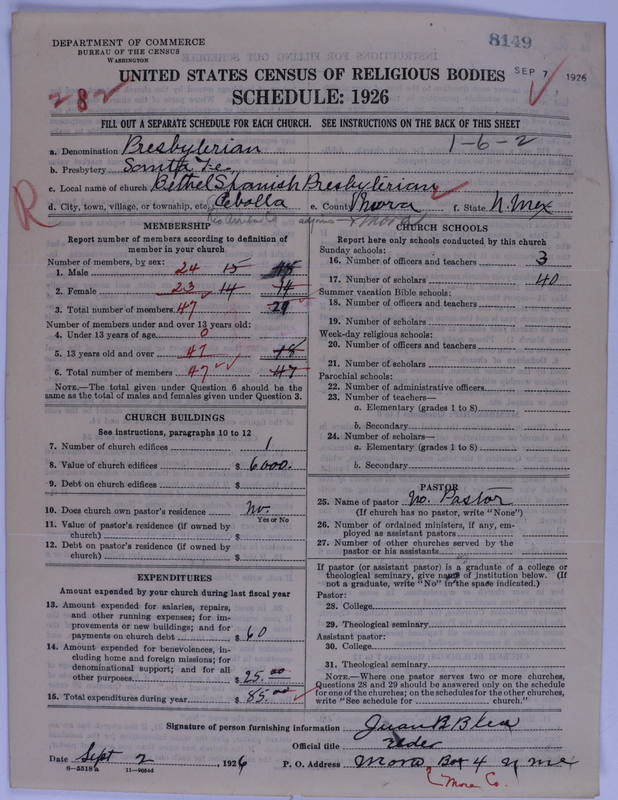 8149
DEPARTMENT OF COMMERCE
BUREAU OF THE CENSUS
WASHINGTON
UNITED STATES CENSUS OF RELIGIOUS BODIES
SEP 7 1926
SCHEDULE: 1926
282
FILL OUT A SEPARATE SCHEDULE FOR EACH CHURCH. SEE INSTRUCTIONS ON THE BACK OF THIS SHEET
a. Denomination Presbyterian 1-6-2
b. Presbytery Santa Fe
c. Local name of church Bethel Spanish Presbyterian
d. City, town, village, or township, etc. Cebolla e. County Mora f. State N. Mex
R
Rio Arriba Co adjoins Mora
MEMBERSHIP
Report number of members according to definition of
member in your church
Number of members, by sex:
1. Male 24 15
2. Female 23 14 14
3. Total number of members 47 29
Number of members under and over 13 years old:
4. Under 13 years of age 0
5. 13 years old and over 47 18
6. Total number of members 47 47
NOTE.—The total given under Question 6 should be
same as the total of males and females given under Question 3.
CHURCH BUILDINGS
See instructions, paragraphs 10 to 12
7. Number of church edifices 1
8. Value of church edifices $ 6000.
9. Debt on church edifices $
10. Does church own pastor's residence No.
Yes or No
11. Value of pastor's residence (if owned by
church) $
12. Debt on pastor's residence (if owned by
church) $
EXPENDITURES
Amount expended by your church during last fiscal year
13. Amount expended for salaries, repairs,
and other running expenses; for im-
provements or new buildings; and for
payments on church debt $ 60
14. Amount expended for benevolences, in-
cluding home and foreign missions; for
denominational support; and for all
other purposes $ 25.00
15. Total expenditures during year $ 85.00
CHURCH SCHOOLS
Report here only schools conducted by this church
Sunday schools:
16. Number of officers and teachers 3
17. Number of scholars 40
Summer vacation Bible schools:
18. Number of officers and teachers
19. Number of scholars
Week-day religious schools:
20. Number of officers and teachers
21. Number of scholars
Parochial schools:
22. Number of administrative officers
23. Number of teachers—
a. Elementary (grades 1 to 8)
b. Secondary
24. Number of scholars—
a. Elementary (grades 1 to 8)
b. Secondary
PASTOR
25. Name of pastor No. Pastor
(If church has no pastor, write "None")
26. Number of ordained ministers, if any, em-
ployed as assistant pastors
27. Number of other churches served by the
pastor or his assistants
If pastor (or assistant pastor) is a graduate of a college or
theological seminary, give name of institution below. (If
not a graduate, write "No" in the space indicated.)
Pastor:
28. College
29. Theological seminary
Assistant pastor:
30. College
31. Theological seminary
NOTE.—Where one pastor serves two or more churches,
Questions 28 and 29 should be answered only on the schedule
for one of the churches; on the schedules for the other churches,
write "See schedule for church."
Signature of person furnishing information Juan B
Official title elder
Date Sept 2, 1926 P. O. Address Mora, Box 4 N Mex
8-5518 a
Mora Co.